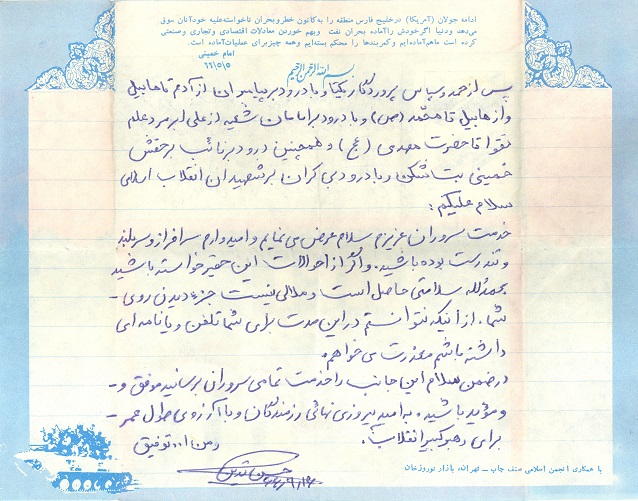 ادامه جولان (آمریکا) درخلیج فارس منطقه را به‌کانون خطروبحران ناخواسته‌علیه خودآنان سوق
می‌دهد ودنیا اگرخودش راآماده بحران نفت وبهم خوردن معادلات اقتصادی و تجاری وصنعتی
کرده است ماهم‌آماده‌ایم وکمربندها را محکم بسته‌ایم وهمه چیزبرای عملیات‌آماده است.
امام خمینی
۶۶/۵/۵
بسم الله الرحمن الرحیم
پس از حمد و سپاس پروردگار یکتا و با درود بر پیامبران از آدم تا هابیل
و از هابیل تا محمد (ص) و با درود بر امامان شیعه از علی ابر مرد علم
تقوا تا حضرت مهدی (عج) و همچنین درود بر نائب برحقش
خمینی بت شکن و با درود بی کران بر شهیدان انقلاب اسلامی
سلام علیکم:
خدمت سروران عزیزم سلام عرض می نمایم و امیدوارم سرافراز و سربلند
و تندرست بوده باشید. و اگر از احوالات این حقیر خواسته باشید
بحمدلله سلامتی حاصل است و ملالی نیست جزء دیدن روی -
شما. از آنیکه نتوانستم در این مدت برای شما تلفن و یا نامه ای
داشته باشم معذرت می خواهم.
در ضمن سلام این جانب را خدمت تمامی سروران برسانید موفق و -
و مؤید باشید. به امید پیروزی نهائی رزمندگان و با آرزوی طول عمر -
برای رهبر کبیر انقلاب.
ومن ا... توفیق
با همکاری انجمن اسلامی صنف چاپ ــ تهران، بازار نوروزخان